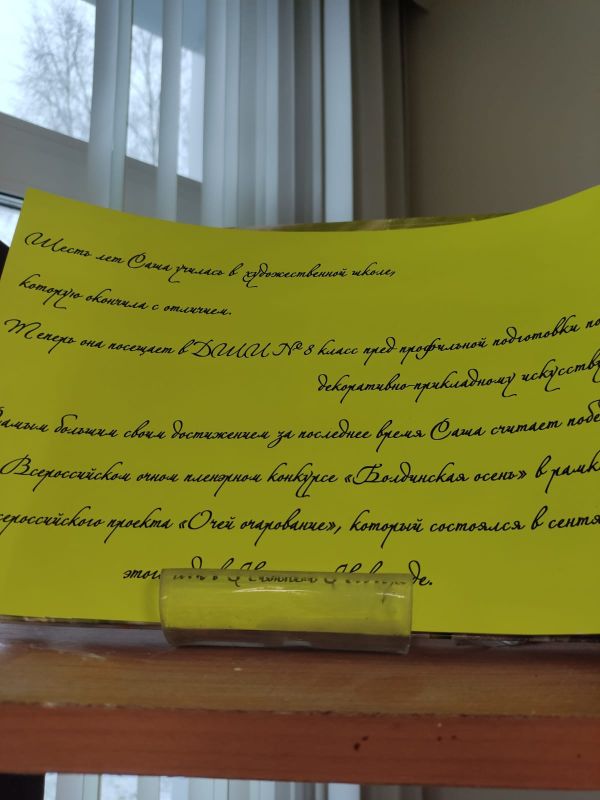 Шесть лет Саша училась в художественной школе,
которую окончила с отличием.
Теперь она посещает в ДШИ № 8 класс пред профильной подготовки по
декоративно-прикладному искусству
Самым большим своим достижением за последнее время Саша считает побе
Всероссийском очном пленэрном конкурсе «Болдинская осень» в рамк
сероссийского проекта «Очей очарование», который состоялся в сентя
этог